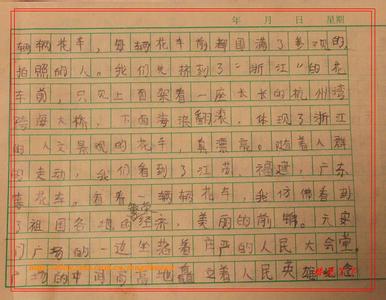 年 月 日 星期
辆辆花车，每辆花车前都围满了参观的，
拍照的人。我们先挤到了“浙江”的花
车前，只见上面架着一座长长的杭州湾
跨海大桥，下面海浪翻滚，体现了浙江
的人文景观的花车，真漂亮。随着人群
的走动，我们看到了江苏、福建，广东
等花车。看着一辆辆花车，我仿佛看到
了祖国各地的繁荣经济，美丽的前景。天安
门广场的一边坐落着庄严的人民大会堂。
广场的中间高高地矗立着人民英雄纪念